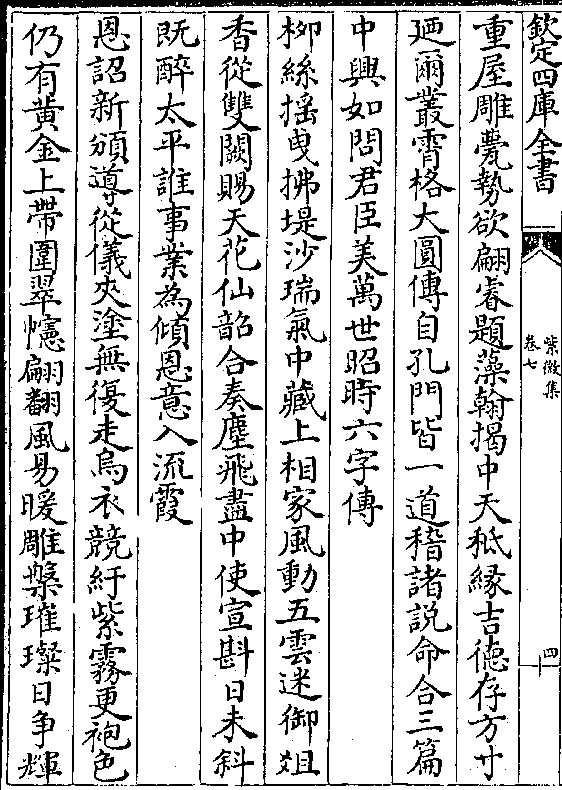 欽定四庫全書
紫微集
卷七
四
重屋雕甍勢欲翩睿題藻翰揭中天秖緣吉德存方寸
廼爾叢霄格大圓傳自孔門皆一道稽諸說命合三篇
中興如問君臣美萬世昭時六字傳
柳絲揺曳拂堤沙瑞氣中藏上相家風動五雲迷御俎
香從雙闕賜天花仙韶合奏塵飛盡中使宣斟日未斜
既醉太平誰事業為傾恩意入流霞
恩詔新頒導從儀夾塗無復走烏衣競紆紫霧更袍色
仍有黄金上帶圍翠幰翩翻風易暖雕槃璀璨日争輝